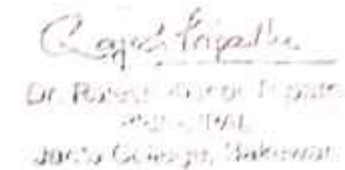 Rajesh Tripathi
Dr. Rajesh Kumar Tripathi
PRINCIPAL
Janta College, Bakewar